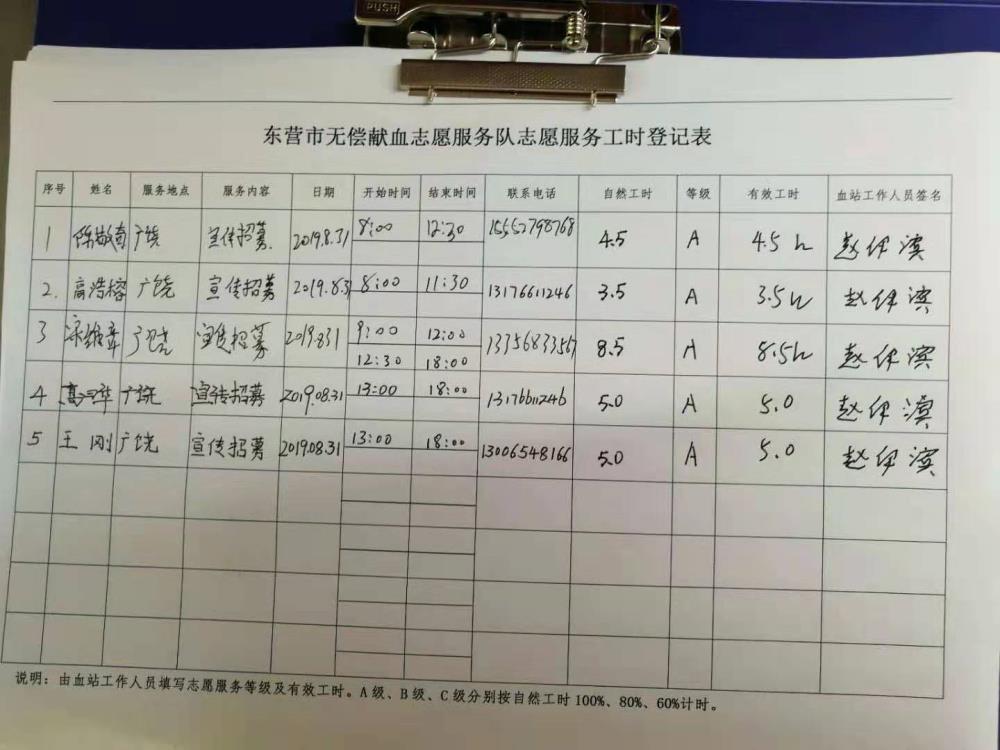 PUSH
东营市无偿献血志愿服务队志愿服务工时登记表
序号 姓名 服务地点 服务内容 日期 开始时间 结束时间 联系电话 自然工时 等级 有效工时 血站工作人员签名
1 广饶 宣传招募 2019.8.31 8:00 12:30 15552798768 4.5 A 4.5h 赵伊滨
2. 高浩榕 广饶 宣传招募 2019.8.31 8:00 11:30 13176611246 3.5 A 3.5h 赵伊滨
3 宋维章 广饶 宣传招募 2019.831 9:00 12:00 13756833567 8.5 A 8.5h 赵伊滨
12:30 18:00
4 广饶 宣传招募 2019.08.31 13:00 18:00 13176611246 5.0 A 5.0 赵伊滨
5 王刚 广饶 宣传招募 2019.08.31 13:00 18:00 13006548166 5.0 A 5.0 赵伊滨
说明：由血站工作人员填写志愿服务等级及有效工时。A级、B级、C级分别按自然工时100%、80%、60%计时。